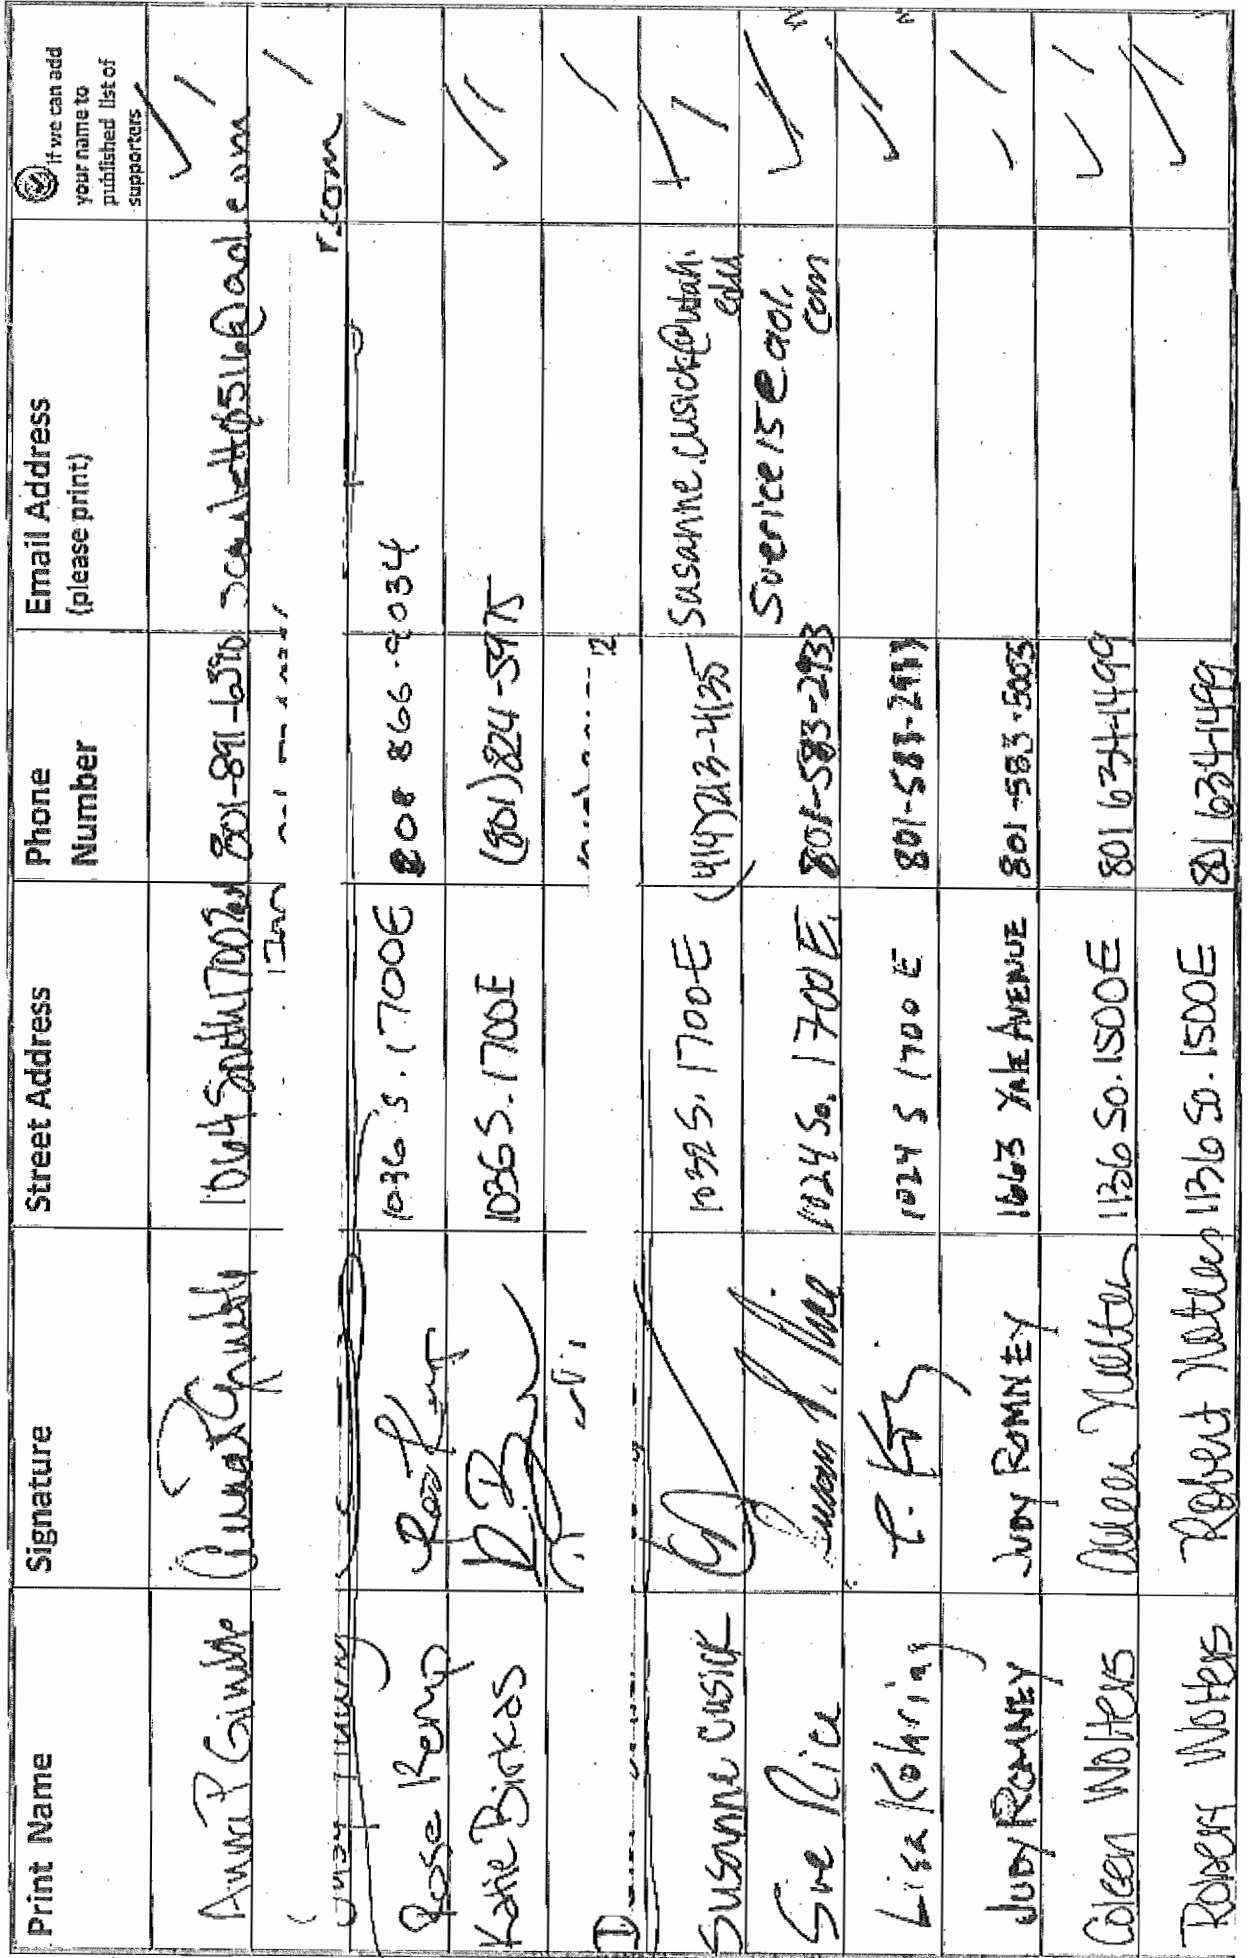 Print Name Signature Street Address Phone Number Email Address (please print) if we can add your name to published list of supporters
Anna P Gimble 1064 South 1700 801-891-6390 @aol.com
r.com
Rose Kemp 1036 S. 1700E 866-9034
Katie Birkos 1036 S. 1700E (801) 824-5975
D 12
Susanne Cusick 1032 S. 1700E (414) 213-4135 susanne.cusick@utah.edu
Sue Rice Susan P. Rice 1024 So. 1700 E. 801-583-2933 Suerice15@aol.com
Lisa 1024 S 1700 E 801-583-2933
JUDY ROMNEY JUDY ROMNEY 1663 YALE AVENUE 801-583-5003
Coleen Wolters 1136 So. 1500E 801 634-1499
Robert Wolters Robert Wolters 1136 So. 1500E 801 634 1499